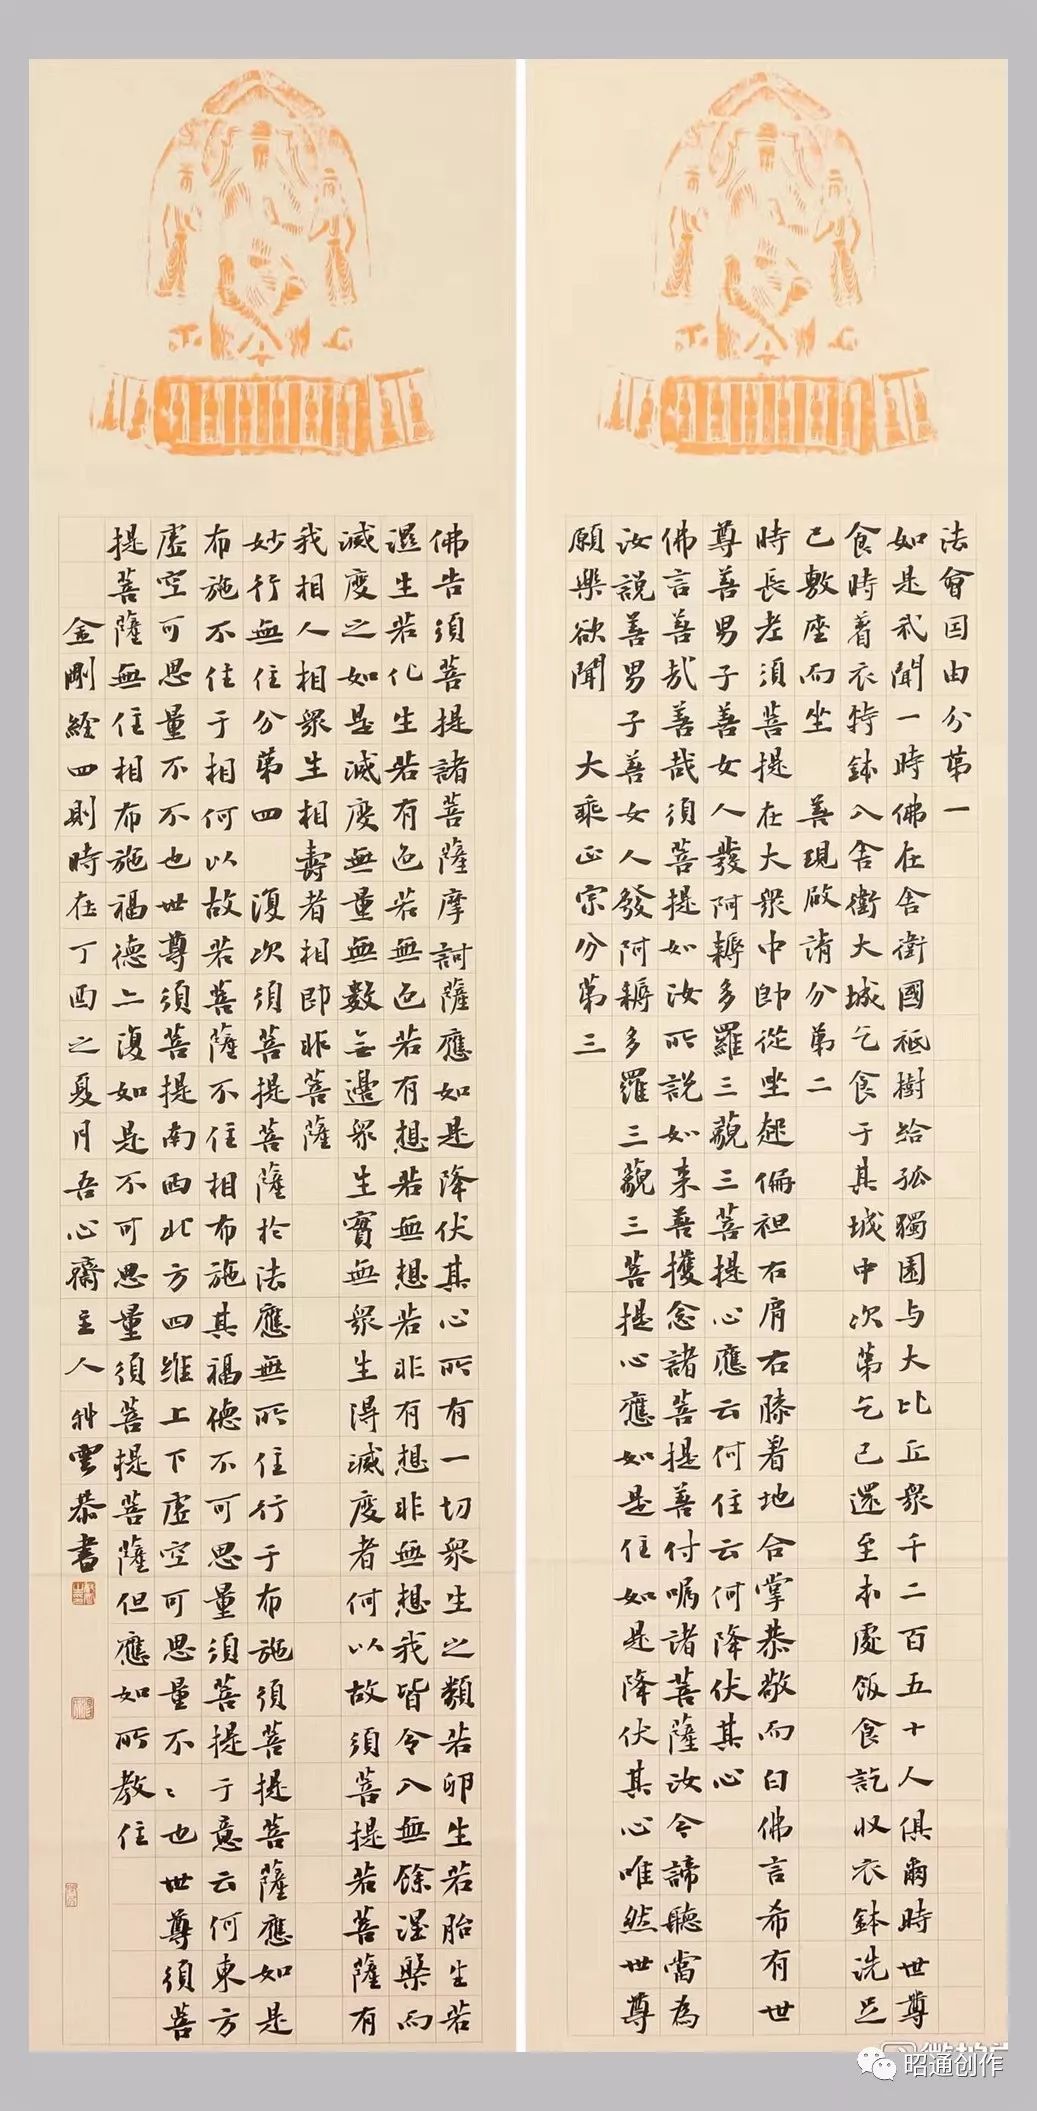 法會因由分苐一
如是我聞一時佛在舍衛國祇樹給孤獨園与大比丘眾千二百五十人俱爾時世尊
食時着衣持鉢入舍衛大城乞食于其城中次苐乞已還至本處飯食訖収衣鉢洗足
已敷座而坐 善現啟請分苐二
時長老須菩提在大眾中即從坐起偏袒右肩右膝着地合掌恭敬而白佛言希有世
尊善男子善女人發阿耨多羅三藐三菩提心應云何住云何降伏其心
佛言善哉善哉須菩提如汝所説如来善護念諸菩提善付嘱諸菩薩汝今諦聽當為
汝説善男子善女人發阿耨多羅三藐三菩提心應如是住如是降伏其心唯然世尊
願樂欲聞 大乘正宗分苐三
佛告須菩提諸菩薩摩訶薩應如是降伏其心所有一切眾生之類若卵生若胎生若
濕生若化生若有色若無色若有想若無想若非有想非無想我皆令入無餘涅槃而
滅度之如是滅度無量無數无邊眾生實無眾生得滅度者何以故須菩提若菩薩有
我相人相眾生相壽者相即非菩薩
妙行無住分苐四 復次須菩提菩薩於法應無所住行于布施須菩提菩薩應如是
布施不住于相何以故若菩薩不住相布施其福德不可思量須菩提于意云何東方
虛空可思量不不也世尊須菩提南西北方四維上下虛空可思量不〻也世尊須菩
提菩薩無住相布施福德亦復如是不可思量須菩提菩薩但應如所教住
金剛經四則時在丁酉之夏月吾心齋主人 雲恭書
昭通创作